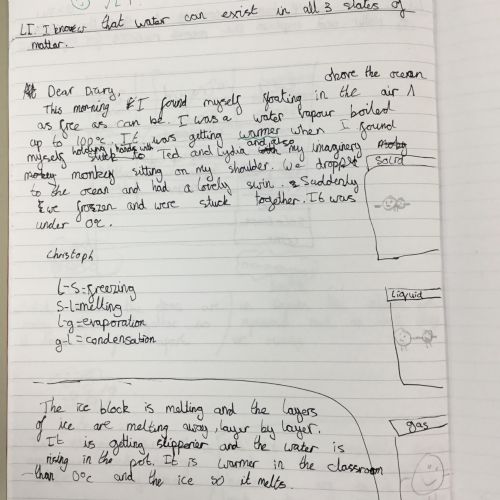 LI: I know that water can exist in all 3 states of
matter.
Dear Diary,
This morning I found myself floating in the air above the ocean
as free as can be. I was a water vapour boiled
up to 100°c. It was getting warmer when I found
myself holding hands with Ted and Lydia and also my imaginary
monkey sitting on my shoulder. We dropped
to the ocean and had a lovely swin. Suddenly
we frozen and were stuck together. It was
under 0°c.
Christoph
L-S=freezing
S-L=melting
L-g=evaporation
g-L=condensation
Solid
Liquid
gas
The ice block is melting and the layers
of ice are melting away, layer by layer.
It is getting slipperier and the water is
rising in the pot. It is warmer in the classroom
than 0°c and the ice so it melts.